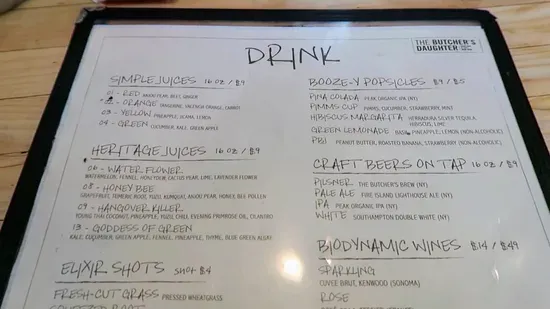 DRINK
THE BUTCHER'S
DAUGHTER
SIMPLE JUICES 16 OZ / $9
01 - RED ANJOU PEAR, BEET, GINGER
ORANGE TANGERINE, VALENCIA ORANGE, CARROT
03 - YELLOW PINEAPPLE, JICAMA, LEMON
04 - GREEN CUCUMBER, KALE, GREEN APPLE
HERITAGE JUICES 16 OZ / $9
06 - WATER FLOWER
WATERMELON, FENNEL, HONEYDEW, CACTUS PEAR, LIME, LAVENDER FLOWER
08 - HONEY BEE
GRAPEFRUIT, TUMERIC ROOT, YUZU, KUMQUAT, ANJOU PEAR, HONEY, BEE POLLEN
09 - HANGOVER KILLER
YOUNG THAI COCONUT, PINEAPPLE, YUZU, CHILI, EVENING PRIMROSE OIL, CILANTRO
13 - GODDESS OF GREEN
KALE, CUCUMBER, GREEN APPLE, FENNEL, PINEAPPLE, THYME, BLUE GREEN ALGAE
ELIXIR SHOTS SHOT $4
FRESH-CUT GRASS PRESSED WHEATGRASS
BOOZE-Y POPSICLES $9 / $5
PINA COLADA PEAK ORGANIC IPA (NY)
PIMMS CUP PIMMS, CUCUMBER, STRAWBERRY, MINT
HIBISCUS MARGARITA HERRADURA SILVER TEQUILA,
HIBISCUS, LIME
GREEN LEMONADE BASIL, PINEAPPLE, LEMON (NON ALCOHOLIC)
PBJ PEANUT BUTTER, ROASTED BANANA, STRAWBERRY (NON ALCOHOLIC)
CRAFT BEERS ON TAP 16 OZ / $9
PILSNER THE BUTCHER'S BREW (NY)
PALE ALE FIRE ISLAND LIGHTHOUSE ALE (NY)
IPA PEAK ORGANIC IPA (NY)
WHITE SOUTHAMPTON DOUBLE WHITE (NY)
BIODYNAMIC WINES $14 / $49
SPARKLING
CUVEE BRUT, KENWOOD (SONOMA)
ROSE